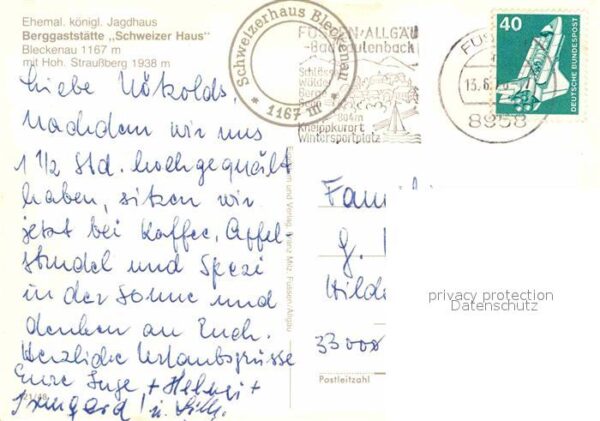 Ehemal. königl. Jagdhaus
Berggaststätte „Schweizer Haus"
Bleckenau 1167 m
mit Hoh. Straußberg 1938 m
Liebe
Nachdem wir uns
1 1/2 Std. hochgequält
haben, sitzen wir
jetzt bei Kaffee, Apfel
strudel und Spezi
in der Sonne und
denken an Euch.
Herzliche Urlaubsgrüsse
Eure Inge + Helmi +
Irmgard! u.
Schweizerhaus Bleckenau
* 1167 m *
FÜSSEN/ALLGÄU
-Bad Faulenbach
804m
Kneippkurort
Wintersportplatz
8958
40
DEUTSCHE BUNDESPOST
und Verlag Franz Milz, Füssen/Allgäu
Fam
G.
Hilde
33000
Postleitzahl
privacy protection
Datenschutz